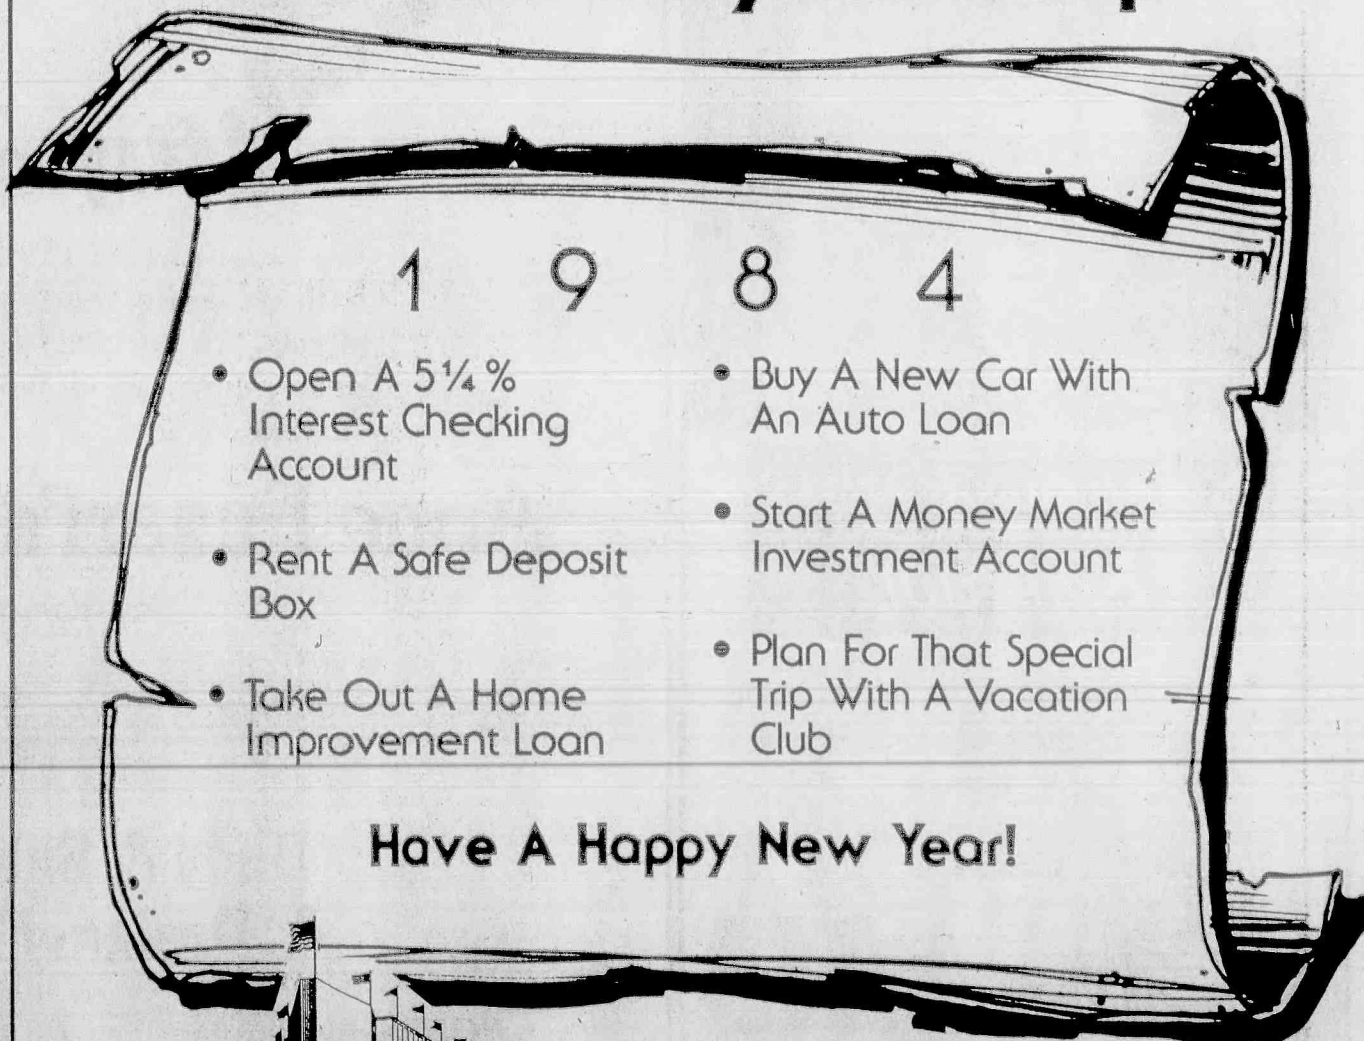 1 9 8 4
• Open A 5¼%
Interest Checking
Account
• Rent A Safe Deposit
Box
• Take Out A Home
Improvement Loan
• Buy A New Car With
An Auto Loan
• Start A Money Market
Investment Account
• Plan For That Special
Trip With A Vacation
Club
Have A Happy New Year!